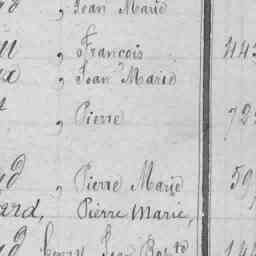 , Jean Marie
, François 443
, Jean Marie
, Pierre 72
, Pierre Marie 59
ard, Pierre Marie,
Jean Bpte 144